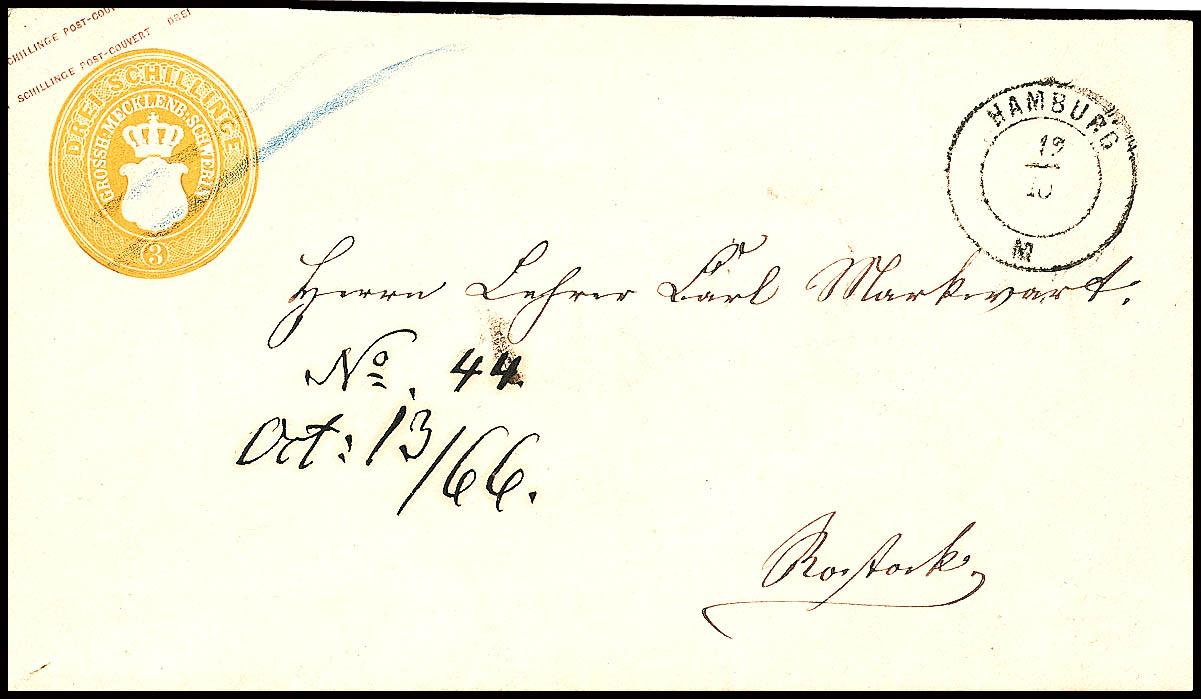 SCHILLINGE POST-COUV
SCHILLINGE POST-COUVERT DREI
DREI SCHILLINGE
GROSSH. MECKLENB. SCHWERIN
3
HAMBURG
12
10
M
Herrn Lehrer Carl Markwart.
No. 44.
Oct: 13/66.
Rostock